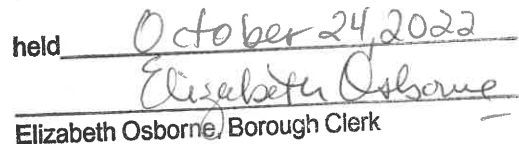 held October 24, 2022
Elizabeth Osborne
Elizabeth Osborne, Borough Clerk